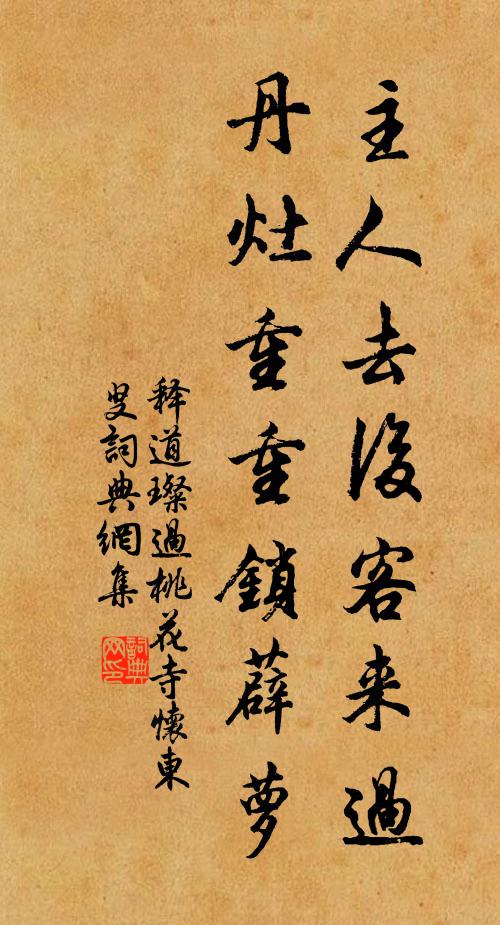 主人去後客来過
丹灶重重鎖薜萝
释道璨過桃花寺懷東
叟詞典網集
詞典
网印